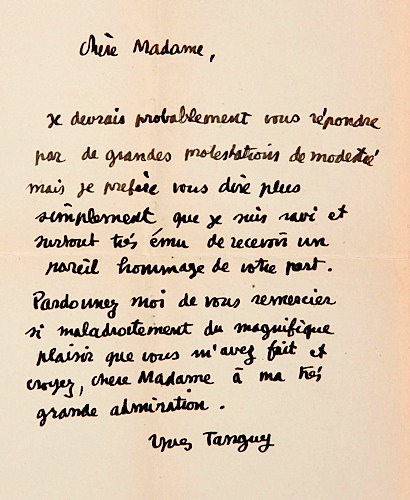 chère Madame,
Je devrais probablement vous répondre
par de grandes protestations de modestie
mais je préfère vous dire plus
simplement que je suis ravi et
surtout très ému de recevoir un
pareil hommage de votre part.
Pardonnez moi de vous remercier
si maladroitement du magnifique
plaisir que vous m'avez fait et
croyez, chère Madame à ma très
grande admiration.
Yves Tanguy